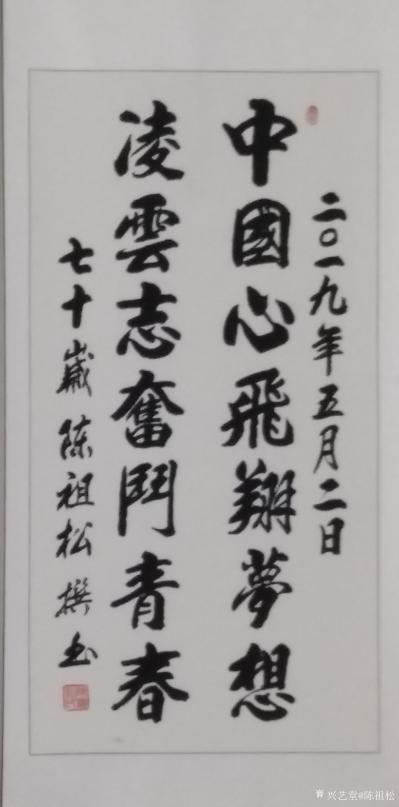 二〇一九年五月二日
中國心飛翔夢想
凌雲志奮鬥青春
七十歲陈祖松撰书
兴艺堂@陈祖松